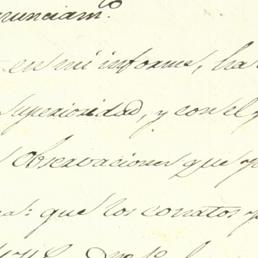 nunciam.º
en mi informe, ha
Superioridad, y con el
observaciones que
que los conatos